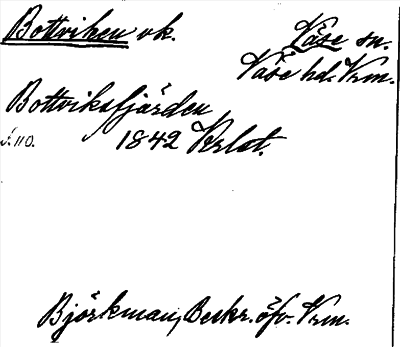 Bottviken vk. Väse sn.
Väse hd. Vrm.
Bottviksfjärden
s. 110. 1842 Krlst.
Björkman, Beskr. öfv. Vrm.